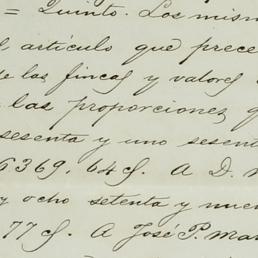 = Quinto. Los mism
l artículo que prece
de las fincas y valores
las proporciones
sesenta y uno sesent
6369.64 cs. A D.
y ocho setenta y nue
77 cs. A José P. Mar